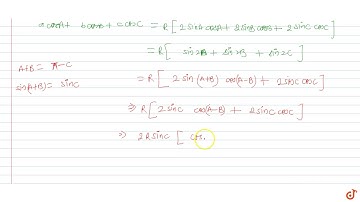 a cosA + b cosB + c cosC = R [ 2 sinA cosA + 2 sinB cosB + 2 sinC cosC ]
= R [ sin2A + sin2B + sin2C ]
A+B = π-C
= R [ 2 sin(A+B) cos(A-B) + 2 sinC cosC ]
sin(A+B) = sinC
⇒ R [ 2 sinC cos(A-B) + 2 sinC cosC ]
⇒ 2R sinC [ cos